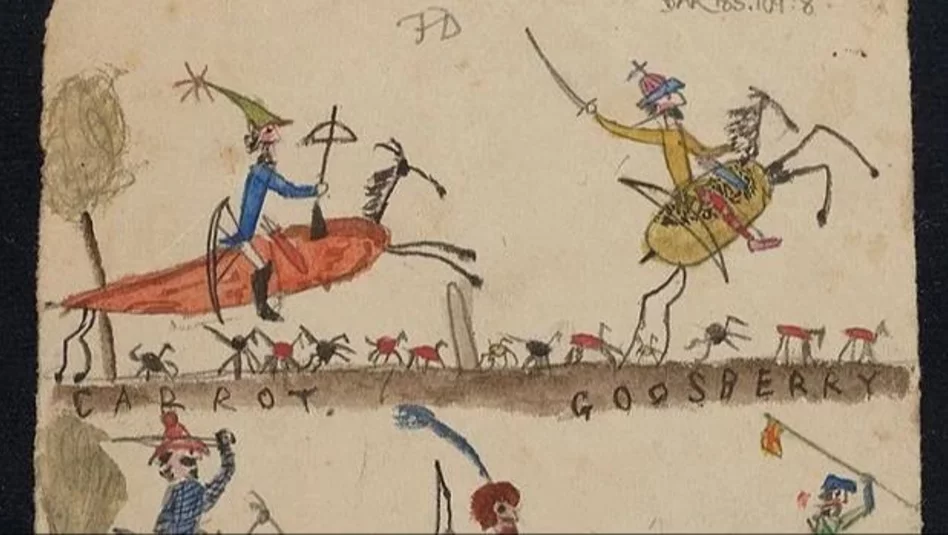 DAR 185.109:8
FD
CARROT. GOOSBERRY